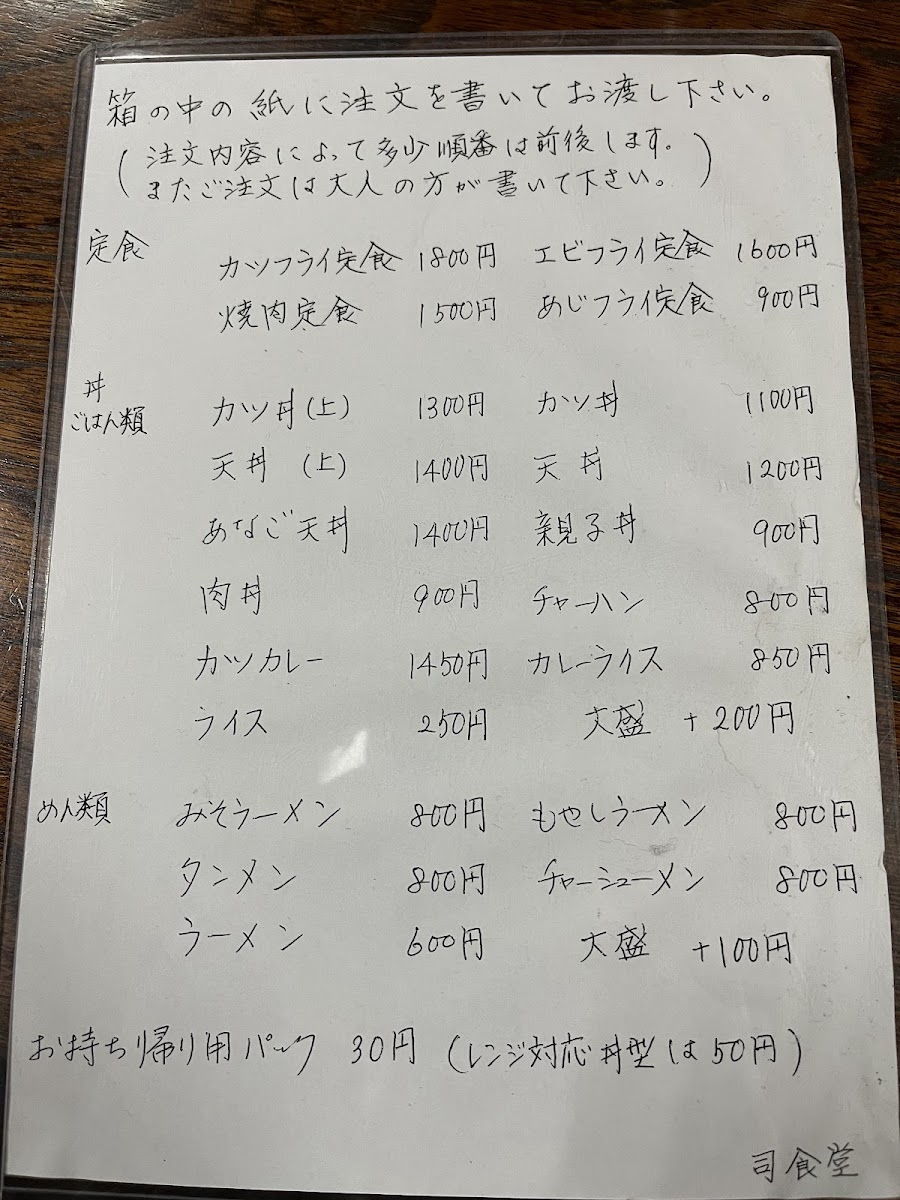 箱の中の紙に注文を書いてお渡し下さい。
(注文内容によって多少順番は前後します。
またご注文は大人の方が書いて下さい。)
定食 カツフライ定食 1800円 エビフライ定食 1600円
焼肉定食 1500円 あじフライ定食 900円
丼
ごはん類 カツ丼(上) 1300円 カツ丼 1100円
天丼 (上) 1400円 天丼 1200円
あなご天丼 1400円 親子丼 900円
肉丼 900円 チャーハン 800円
カツカレー 1450円 カレーライス 850円
ライス 250円 大盛 +200円
めん類 みそラーメン 800円 もやしラーメン 800円
タンメン 800円 チャーシューメン 800円
ラーメン 600円 大盛 +100円
お持ち帰り用パック 30円 (レンジ対応丼型は50円)
司食堂